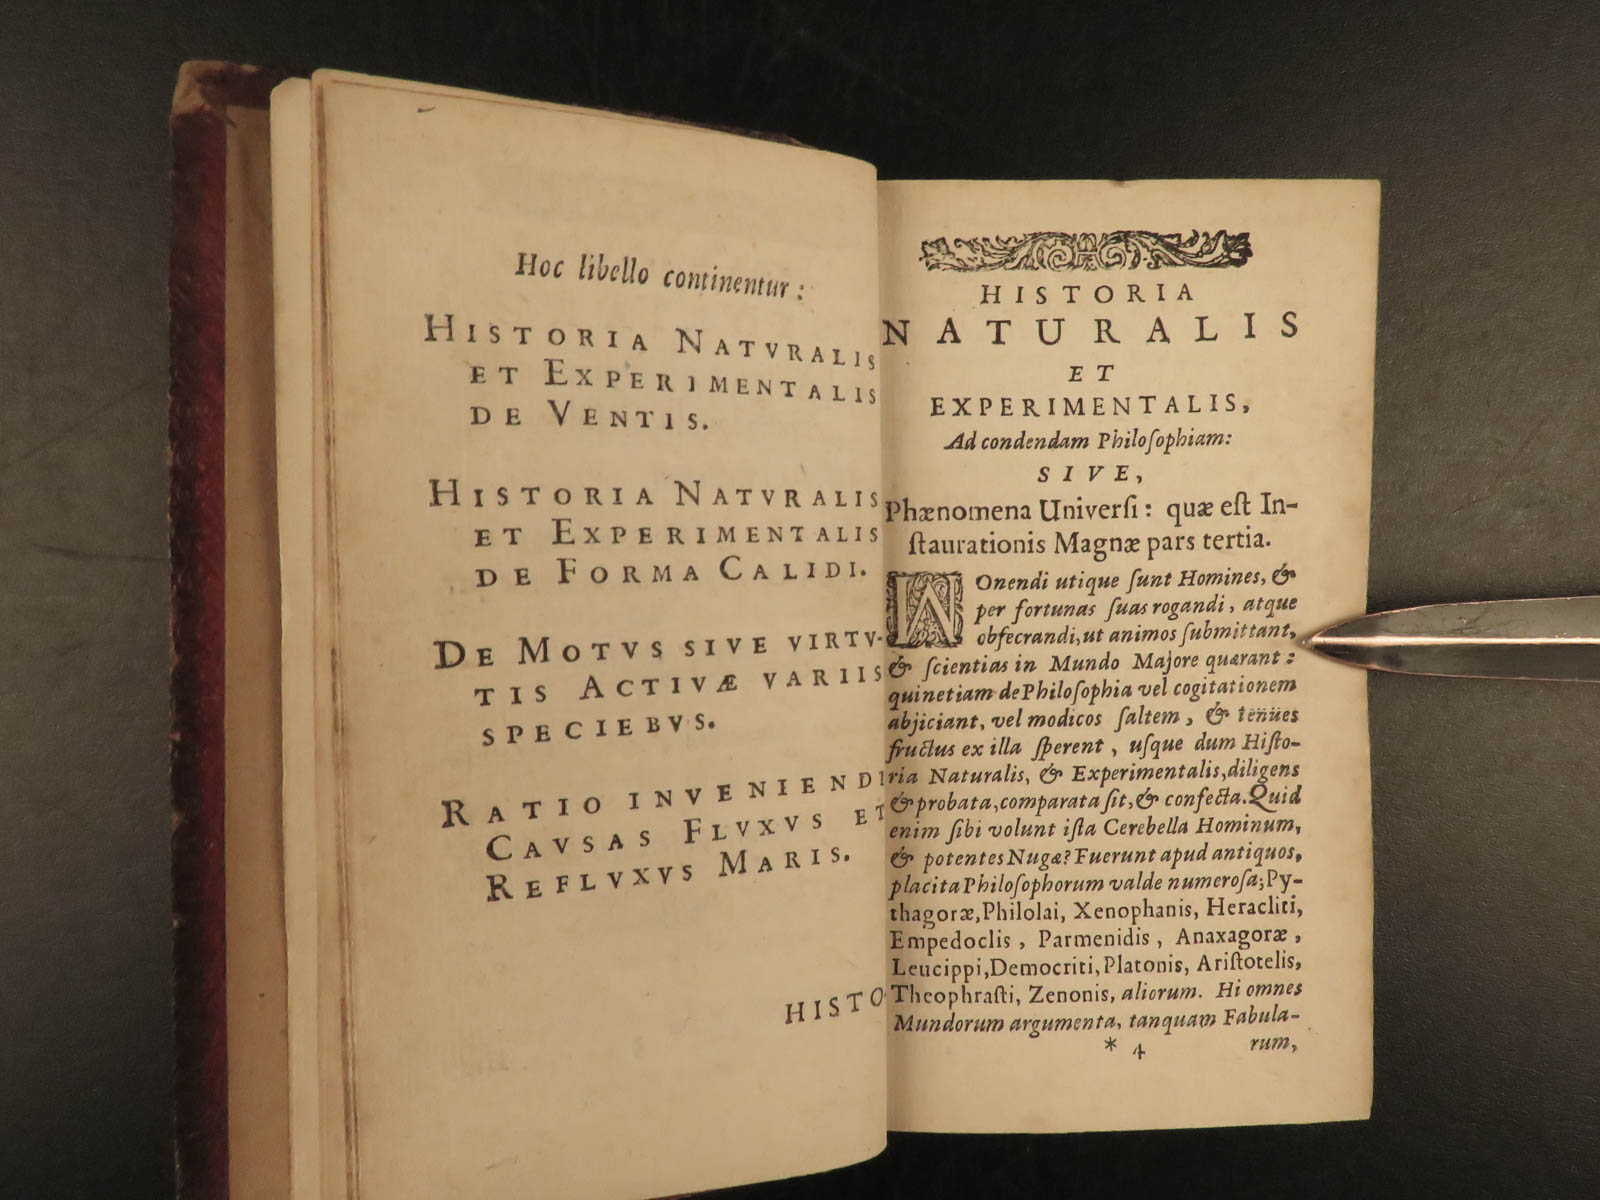 Hoc libello continentur:
HISTORIA NATVRALIS
ET EXPERIMENTALIS
DE VENTIS.
HISTORIA NATVRALIS
ET EXPERIMENTALIS
DE FORMA CALIDI.
DE MOTVS SIVE VIRTV-
TIS ACTIVÆ VARIIS
SPECIEBVS.
RATIO INVENIENDI
CAVSAS FLVXVS ET
REFLVXVS MARIS.
HISTO
HISTORIA
NATURALIS
ET
EXPERIMENTALIS,
Ad condendam Philoſophiam:
SIVE,
Phænomena Univerſi: quæ eſt In-
ſtaurationis Magnæ pars tertia.
Onendi utique ſunt Homines, &
per fortunas ſuas rogandi, atque
obſecrandi, ut animos ſubmittant,
& ſcientias in Mundo Majore quærant:
quinetiam de Philoſophia vel cogitationem
abjiciant, vel modicos ſaltem, & tenües
fructus ex illa ſperent, uſque dum Hiſto-
ria Naturalis, & Experimentalis, diligens
& probata, comparata ſit, & confecta. Quid
enim ſibi volunt iſta Cerebella Hominum,
& potentes Nugæ? Fuerunt apud antiquos,
placita Philoſophorum valde numeroſa; Py-
thagoræ, Philolai, Xenophanis, Heracliti,
Empedoclis, Parmenidis, Anaxagoræ,
Leucippi, Democriti, Platonis, Ariſtotelis,
Theophraſti, Zenonis, aliorum. Hi omnes
Mundorum argumenta, tanquam Fabula-
* 4 rum,